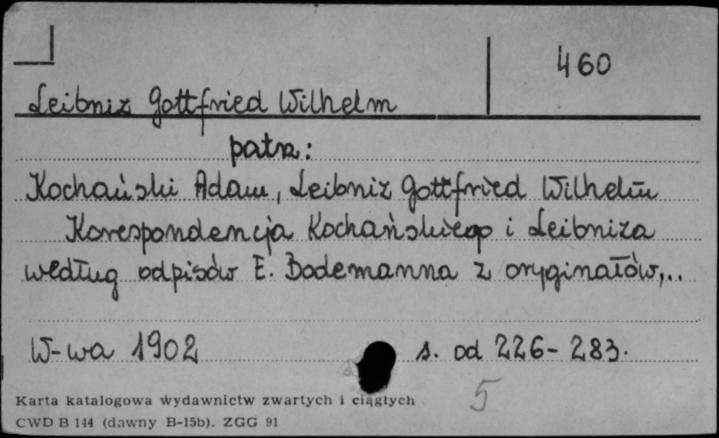 460
Leibniz Gottfried Wilhelm
patrz:
Kochański Adam, Leibniz Gottfried Wilhelm
Korespondencja Kochańskiego i Leibniza
według odpisów E. Bodemanna z oryginałów,..
W-wa 1902 s. od 226-283.
5
Karta katalogowa wydawnictw zwartych i ciągłych
CWD B 144 (dawny B-15b). ZGG 91